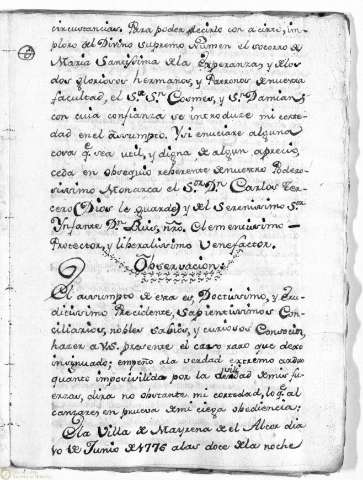 circunstancias. Para poder decirlo con acierto, im-
ploro del Divino Supremo Numen el socorro de
Maria Santissima de la Esperanza, y de los
dos gloriosos hermanos, y Patronos de nuestra
facultad, el Sr. Sn. Cosme, y Sn. Damian;
con cuia confianza se introduze mi corte-
dad en el assumpto. Y si enuciare alguna
cosa qe. sea util, y digna de algun aprecio,
ceda en obsequio reberente de nuestro Podero-
sissimo Monarca el Sor. Dn. Carlos Ter-
cero (Dios le guarde) y del Serenissimo Sor.
Ynfante Dn. Luis, nro. Clementissimo
Protector, y liberalissimo Venefactor.
Observacion.
El assumpto de esta es, Doctissimo, y Eru-
dictissimo Precidente, Sapientissimos Con-
ciliarios, nobles Sabios, y curiosos Consocios,
hazer a VS. presente el caso raro que dexo
insinuado; empeño a la verdad extremo arduo
quanto impocivilida por la devilidad de mis fu-
erzas, dira no obstante mi cortedad, lo qe. al
canzare, en prueva de mi ciega obediencia;
En la Villa de Mayrena de el Alcor dia
10 de Junio de 1776 a las doce de la noche